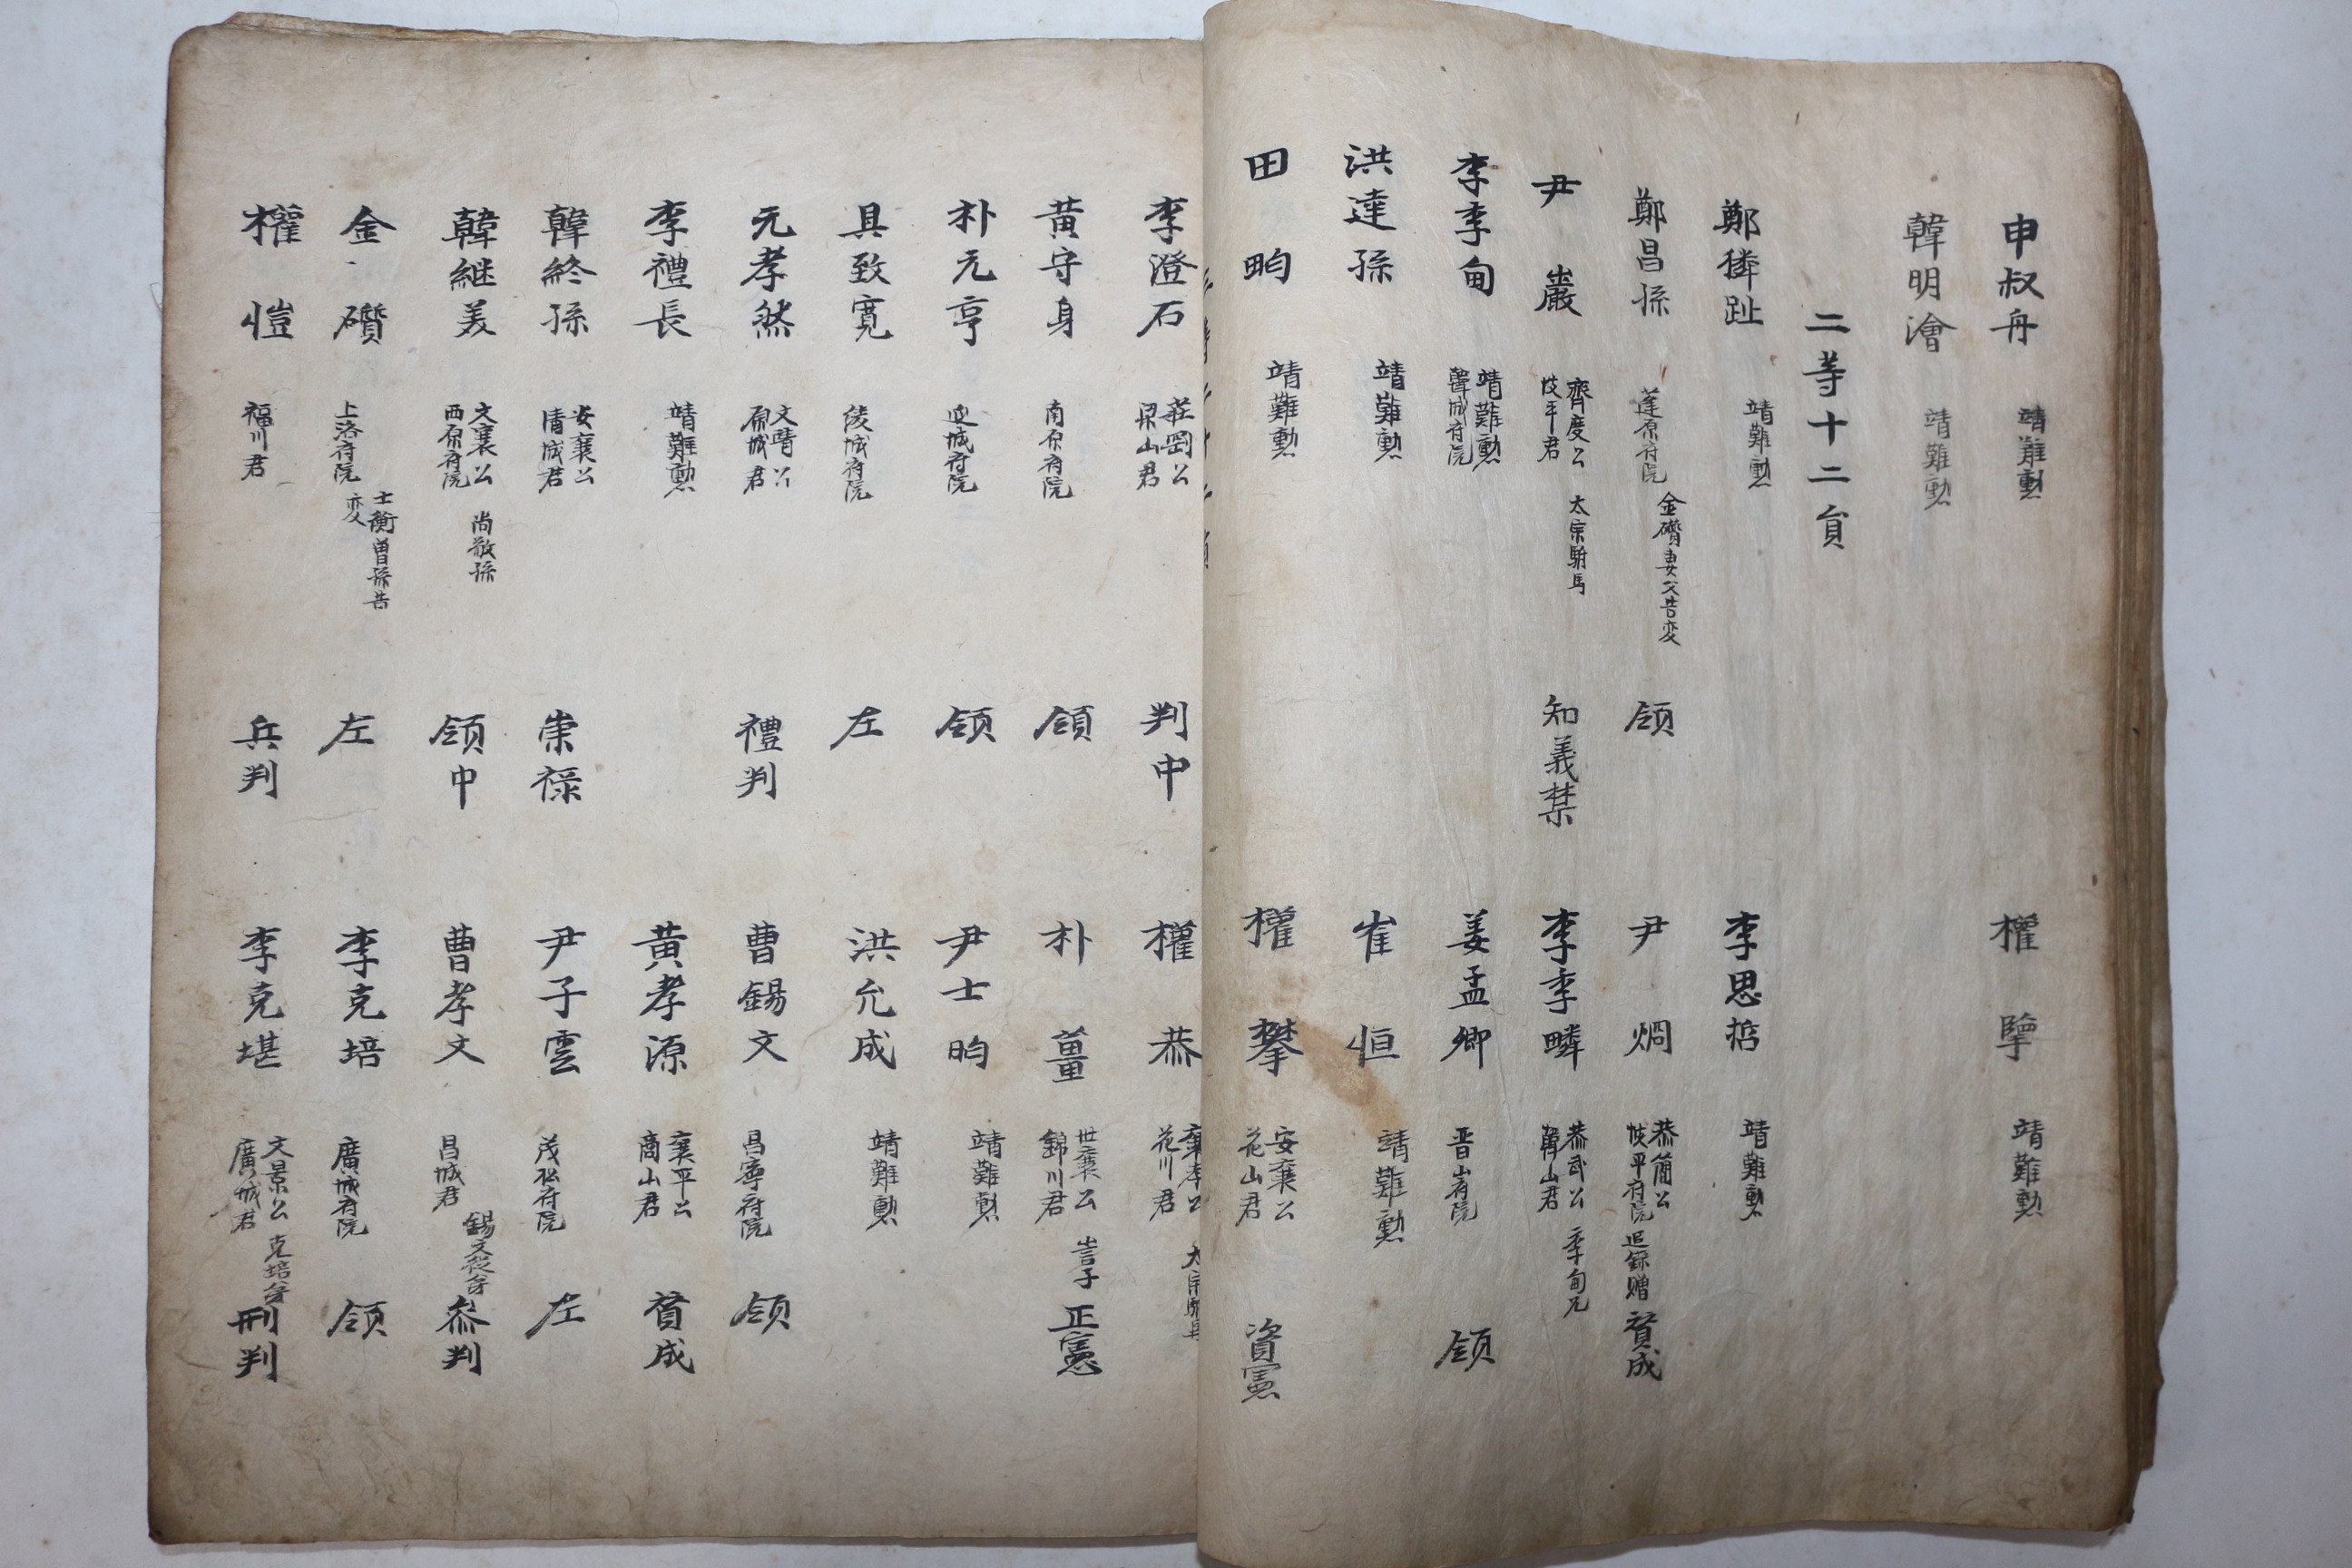 申叔舟 靖難勲 權擥 靖難勲
韓明澮 靖難勲
二等十二貟
鄭獜趾 靖難勲 李思哲 靖難勲
鄭昌孫 蓬原府院 金礩妻父告变 領 尹烱 恭簡公 坡平府院 追錄贈 賛成
尹巖 齊度公 坡平君 太宗駙馬 知義禁 李季疄 恭武公 韓山君 季甸兄
李季甸 靖難勲 韓城府院 姜孟卿 晋山府院 領
洪達孫 靖難勲 崔恒 靖難勲
田畇 靖難勲 權攀 安襄公 花山君 資憲
李澄石 莊罡公 梁山君 判中 權恭 襄孝公 花川君
黃守身 南原府院 領 朴薑 世襄公 錦川君 訔子 正憲
朴元亨 延城府院 領 尹士昀 靖難勲
具致寬 綾城府院 左 洪允成 靖難勲
元孝然 文靖公 原城君 禮判 曹錫文 昌寧府院 領
李禮長 靖難勲 黃孝源 襄平公 商山君 賛成
韓終孫 安襄公 清城君 崇祿 尹子雲 茂松府院 左
韓継美 文襄公 西原府院 尚敬孫 領中 曹孝文 昌城君 錫文從弟 叅判
金礩 上洛府院 士衡曽孫告变 左 李克培 廣城府院 領
權愷 福川君 兵判 李克堪 文景公 廣城君 克培弟 刑判